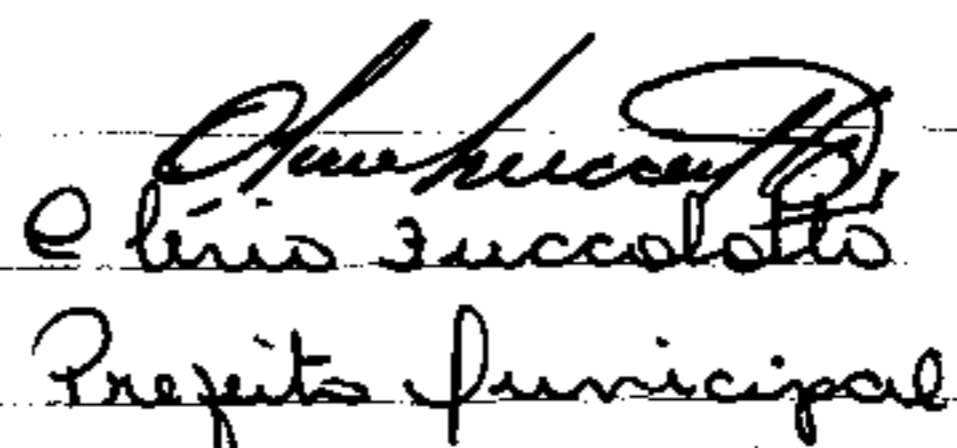 Lírio Zuccolotto
Prefeito Municipal